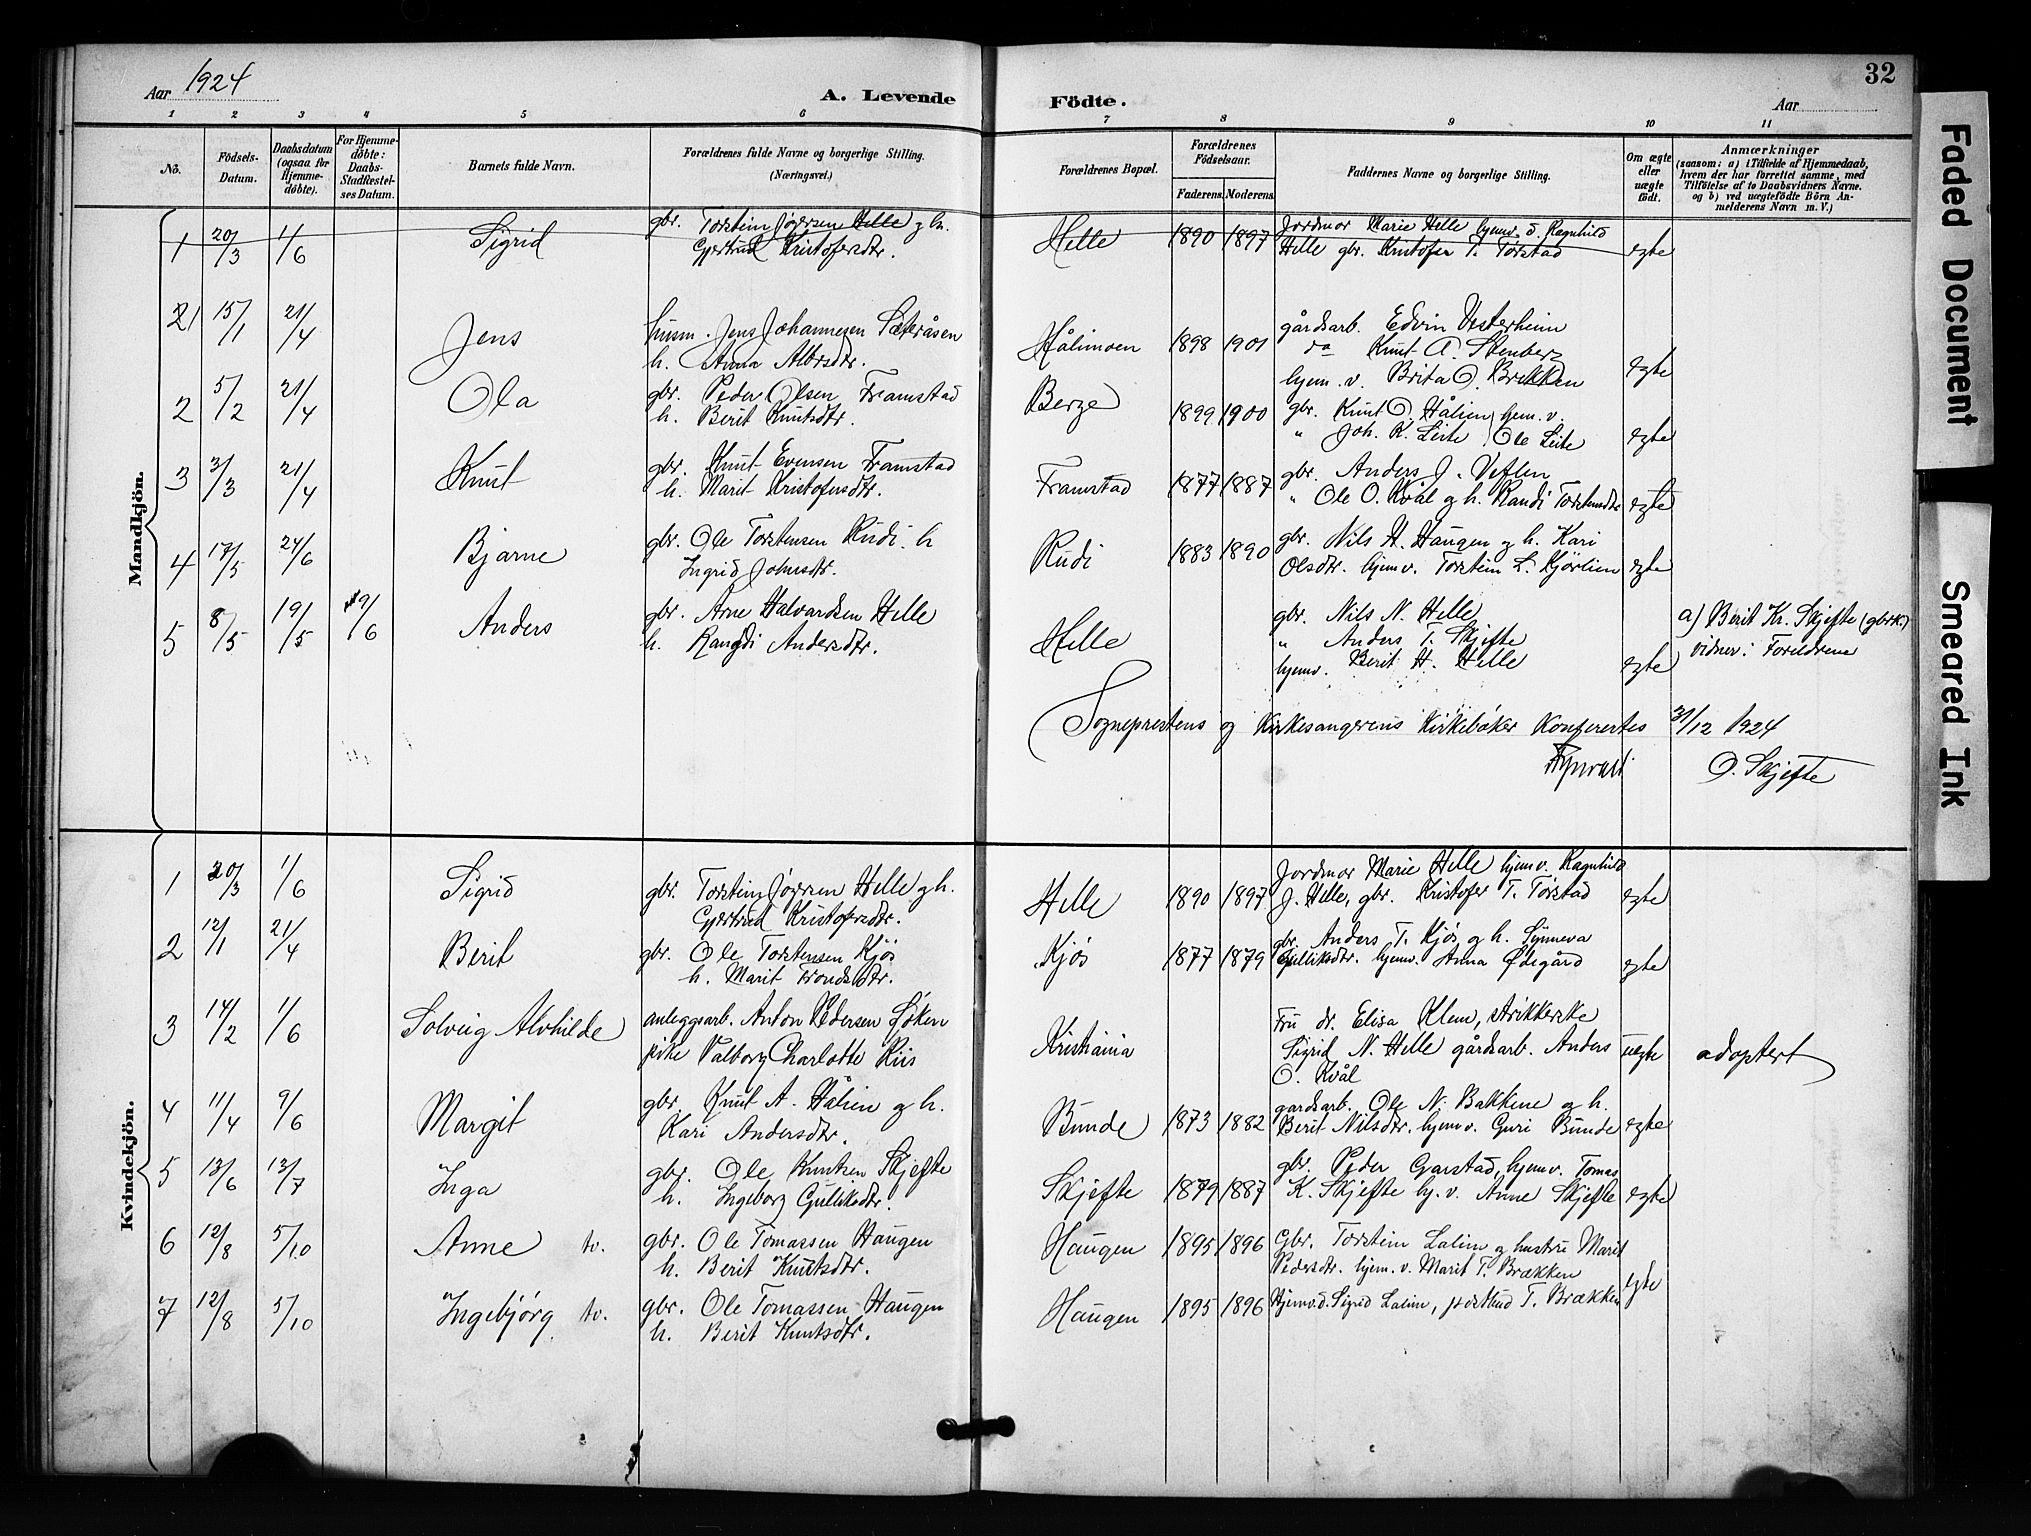 Aar 1924
A. Levende Födte.
Aar
32
1 2 3 4 5 6 7 8 9 10 11
No.
Födsels-Datum.
Daabsdatum (ogsaa for Hjemmedøbte).
For Hjemmedøbte: Daabs-Stadfæstelses Datum.
Barnets fulde Navn.
Forældrenes fulde Navne og borgerlige Stilling. (Næringsvei.)
Forældrenes Bopæl.
Forældrenes Födselsaar.
Faderens. Moderens.
Faddernes Navne og borgerlige Stilling.
Om ægte eller uægte födt.
Anmærkninger
(saasom: a) i Tilfælde af Hjemmedaab,
hvem der har forrettet samme, med
Tilföielse af to Daabsvidners Navne.
og b) ved uægtefödte Börn Anmelderens Navn m. V.)
Mandkjön.
1 20/3 1/6 Sigrid gbr. Torstein Jögersen Helle g h.
Gjertrud Kristofersdtr. Helle 1890 1897 Jordmor Marie Helle hjemv. d. Ragnhild
Helle gbr. Kristofer T. Torstad egte
1 15/1 21/4 Jens husm. Jens Johannesen Sæteråsen
h. Anna Albrsdtr. Hålimoen 1898 1901 gårdsarb. Edvin Vesterheim
do Knut A. Stenberg
hjem. v. Brita O. Brekken egte
2 5/2 21/4 Ola gbr. Peder Olsen Framstad
h. Berit Knutsdtr. Berge 1899 1900 gbr. Knut O. Hålien hjem. v.
" Joh. K. Leite Ole Leite egte
3 3/3 21/4 Knut gbr. Knut Evensen Framstad
h. Marit Kristofersdtr. Framstad 1877 1887 gbr. Anders J. Veflen
" Ole O. Kvål g h. Randi Torsteinsdtr egte
4 17/5 24/6 Bjarne gbr. Ole Torstensen Rudi. h
Ingrid Johnsdtr. Rudi 1883 1890 gbr. Nils H. Haugen g h. Kari
Olsdtr. hjemv. Torstein L. Kjørlien egte
5 8/5 19/5 9/6 Anders gbr. Arne Halvardsen Helle
h. Rangdi Andersdtr. Helle gbr. Nils N. Helle
" Anders T. Skjefte
hjemv. Berit H. Helle egte a) Berit Kr. Skjefte (gbrk.)
vidner: Foreldrene
Sogneprestens og Kirkesangerens Kirkebøker Konfererites 31/12 1924
O. Skjefte
Kvindekjön.
1 20/3 1/6 Sigrid gbr. Torstein Jögersen Helle g h.
Gjertrud Kristofersdtr. Helle 1890 1897 Jordmor Marie Helle hjemv. Ragnhild
J. Helle, gbr. Kristofer T. Torstad egte
2 12/1 21/4 Berit gbr. Ole Torstensen Kjøs
h. Marit Trondsdtr. Kjøs 1877 1879 gbr. Anders T. Kjøs g h. Synneva
Gulliksdtr. hjemv. Anna Ødegård egte
3 14/2 1/6 Solveig Alvhilde anleggsarb. Anton Pedersen Løken
pike Valborg Charlotte Riis Kristiania Fru dr. Elisa Klem, strikkerske
Sigrid N. Helle gårdsarb. Anders
O. Kvål uegte adoptert
4 11/4 9/6 Margit gbr. Knut A. Hålien g h.
Kari Andersdtr. Bunde 1873 1882 gardsarb. Ole N. Bakkene g h.
Berit Nilsdtr. hjemv. Guri Bunde egte
5 13/6 13/7 Inga gbr. Ole Knutsen Skjefte
h. Ingeborg Gulliksdtr. Skjefte 1879 1887 gbr. Peder Garstad, hjemv. Tomas
K. Skjefte hj. v. Anne Skjefte egte
6 12/8 5/10 Anne tv. gbr. Ole Tomassen Haugen
h. Berit Knutsdtr. Haugen 1895 1896 Gbr. Torstein Lalim g hustru Marit
Pedersdtr. hjem. v. Marit T. Brækken egte
7 12/8 5/10 Ingebjørg tv. gbr. Ole Tomassen Haugen
h. Berit Knutsdtr. Haugen 1895 1896 Hjemv. d. Sigrid Lalim, T. Brækken
Faded Document
Smeared Ink